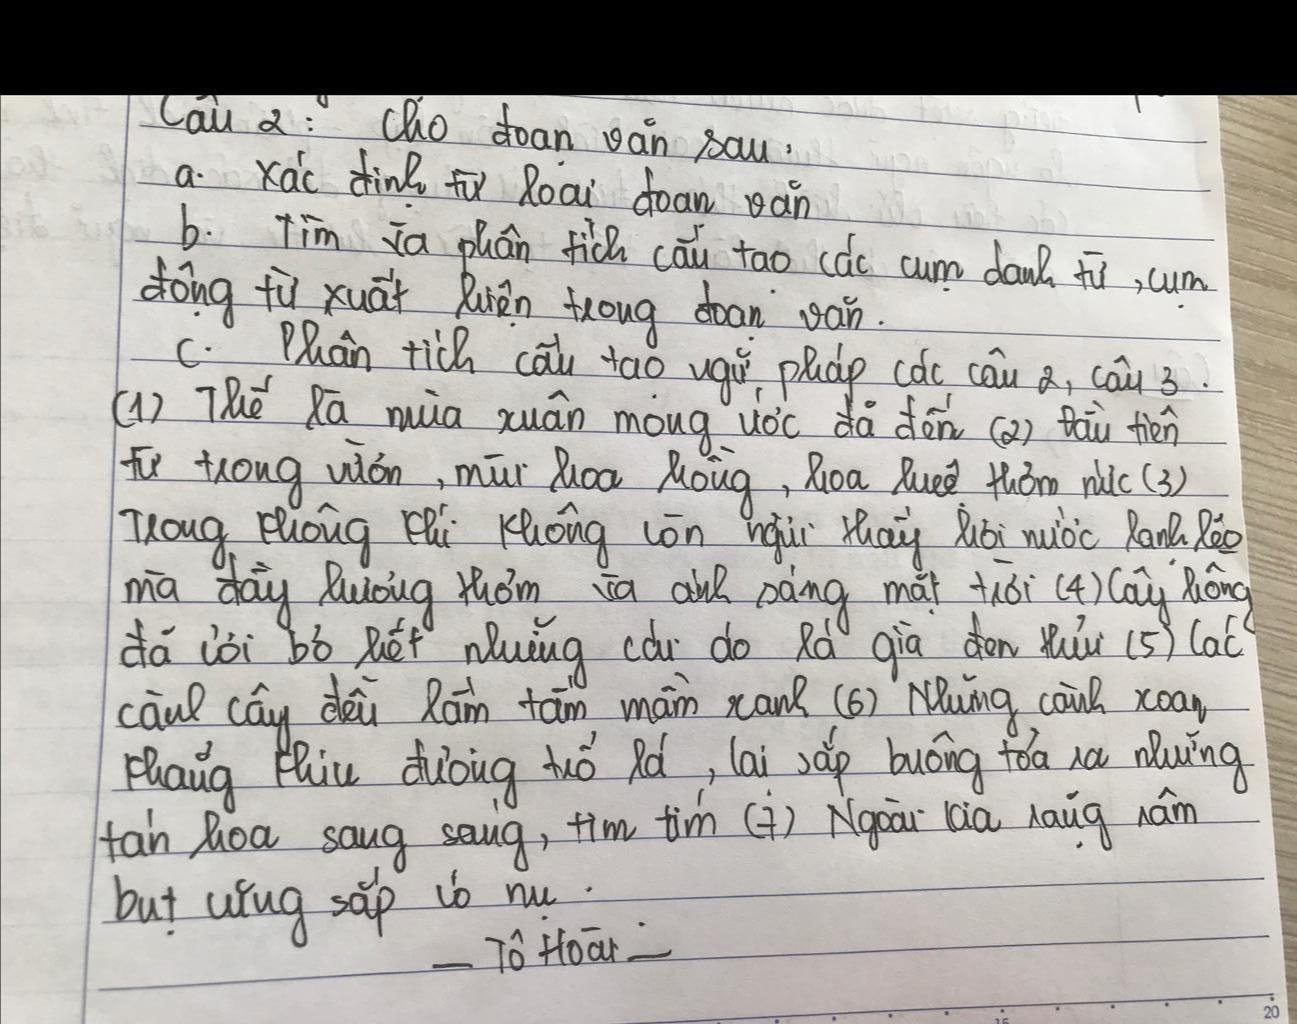 Câu 2: Cho đoạn văn sau:
a. Xác định từ loại đoạn văn
b. Tìm và phân tích cấu tạo các cụm danh từ, cụm
động từ xuất hiện trong đoạn văn.
c. Phân tích cấu tạo ngữ pháp các câu 2, câu 3.
(1) Thế là mùa xuân mong ước đã đến (2) Đầu tiên
từ trong vườn, mùi hoa hồng, hoa huệ thơm nức (3)
Trong không khí không còn ngửi thấy hơi nước lạnh lẽo
mà đầy hương thơm và ánh sáng mặt trời (4) Cây hồng
đã cởi bỏ hết những cái áo lá già đen thủi (5) Các
cành cây đều lấm tấm mầm xanh (6) Những cành xoan
khẳng khiu đương trổ lá, lại sắp buông tỏa ra những
tán hoa sang sáng, tim tím (7) Ngoài kia rặng râm
bụt cũng sắp có nụ.
— Tô Hoài —
15
20